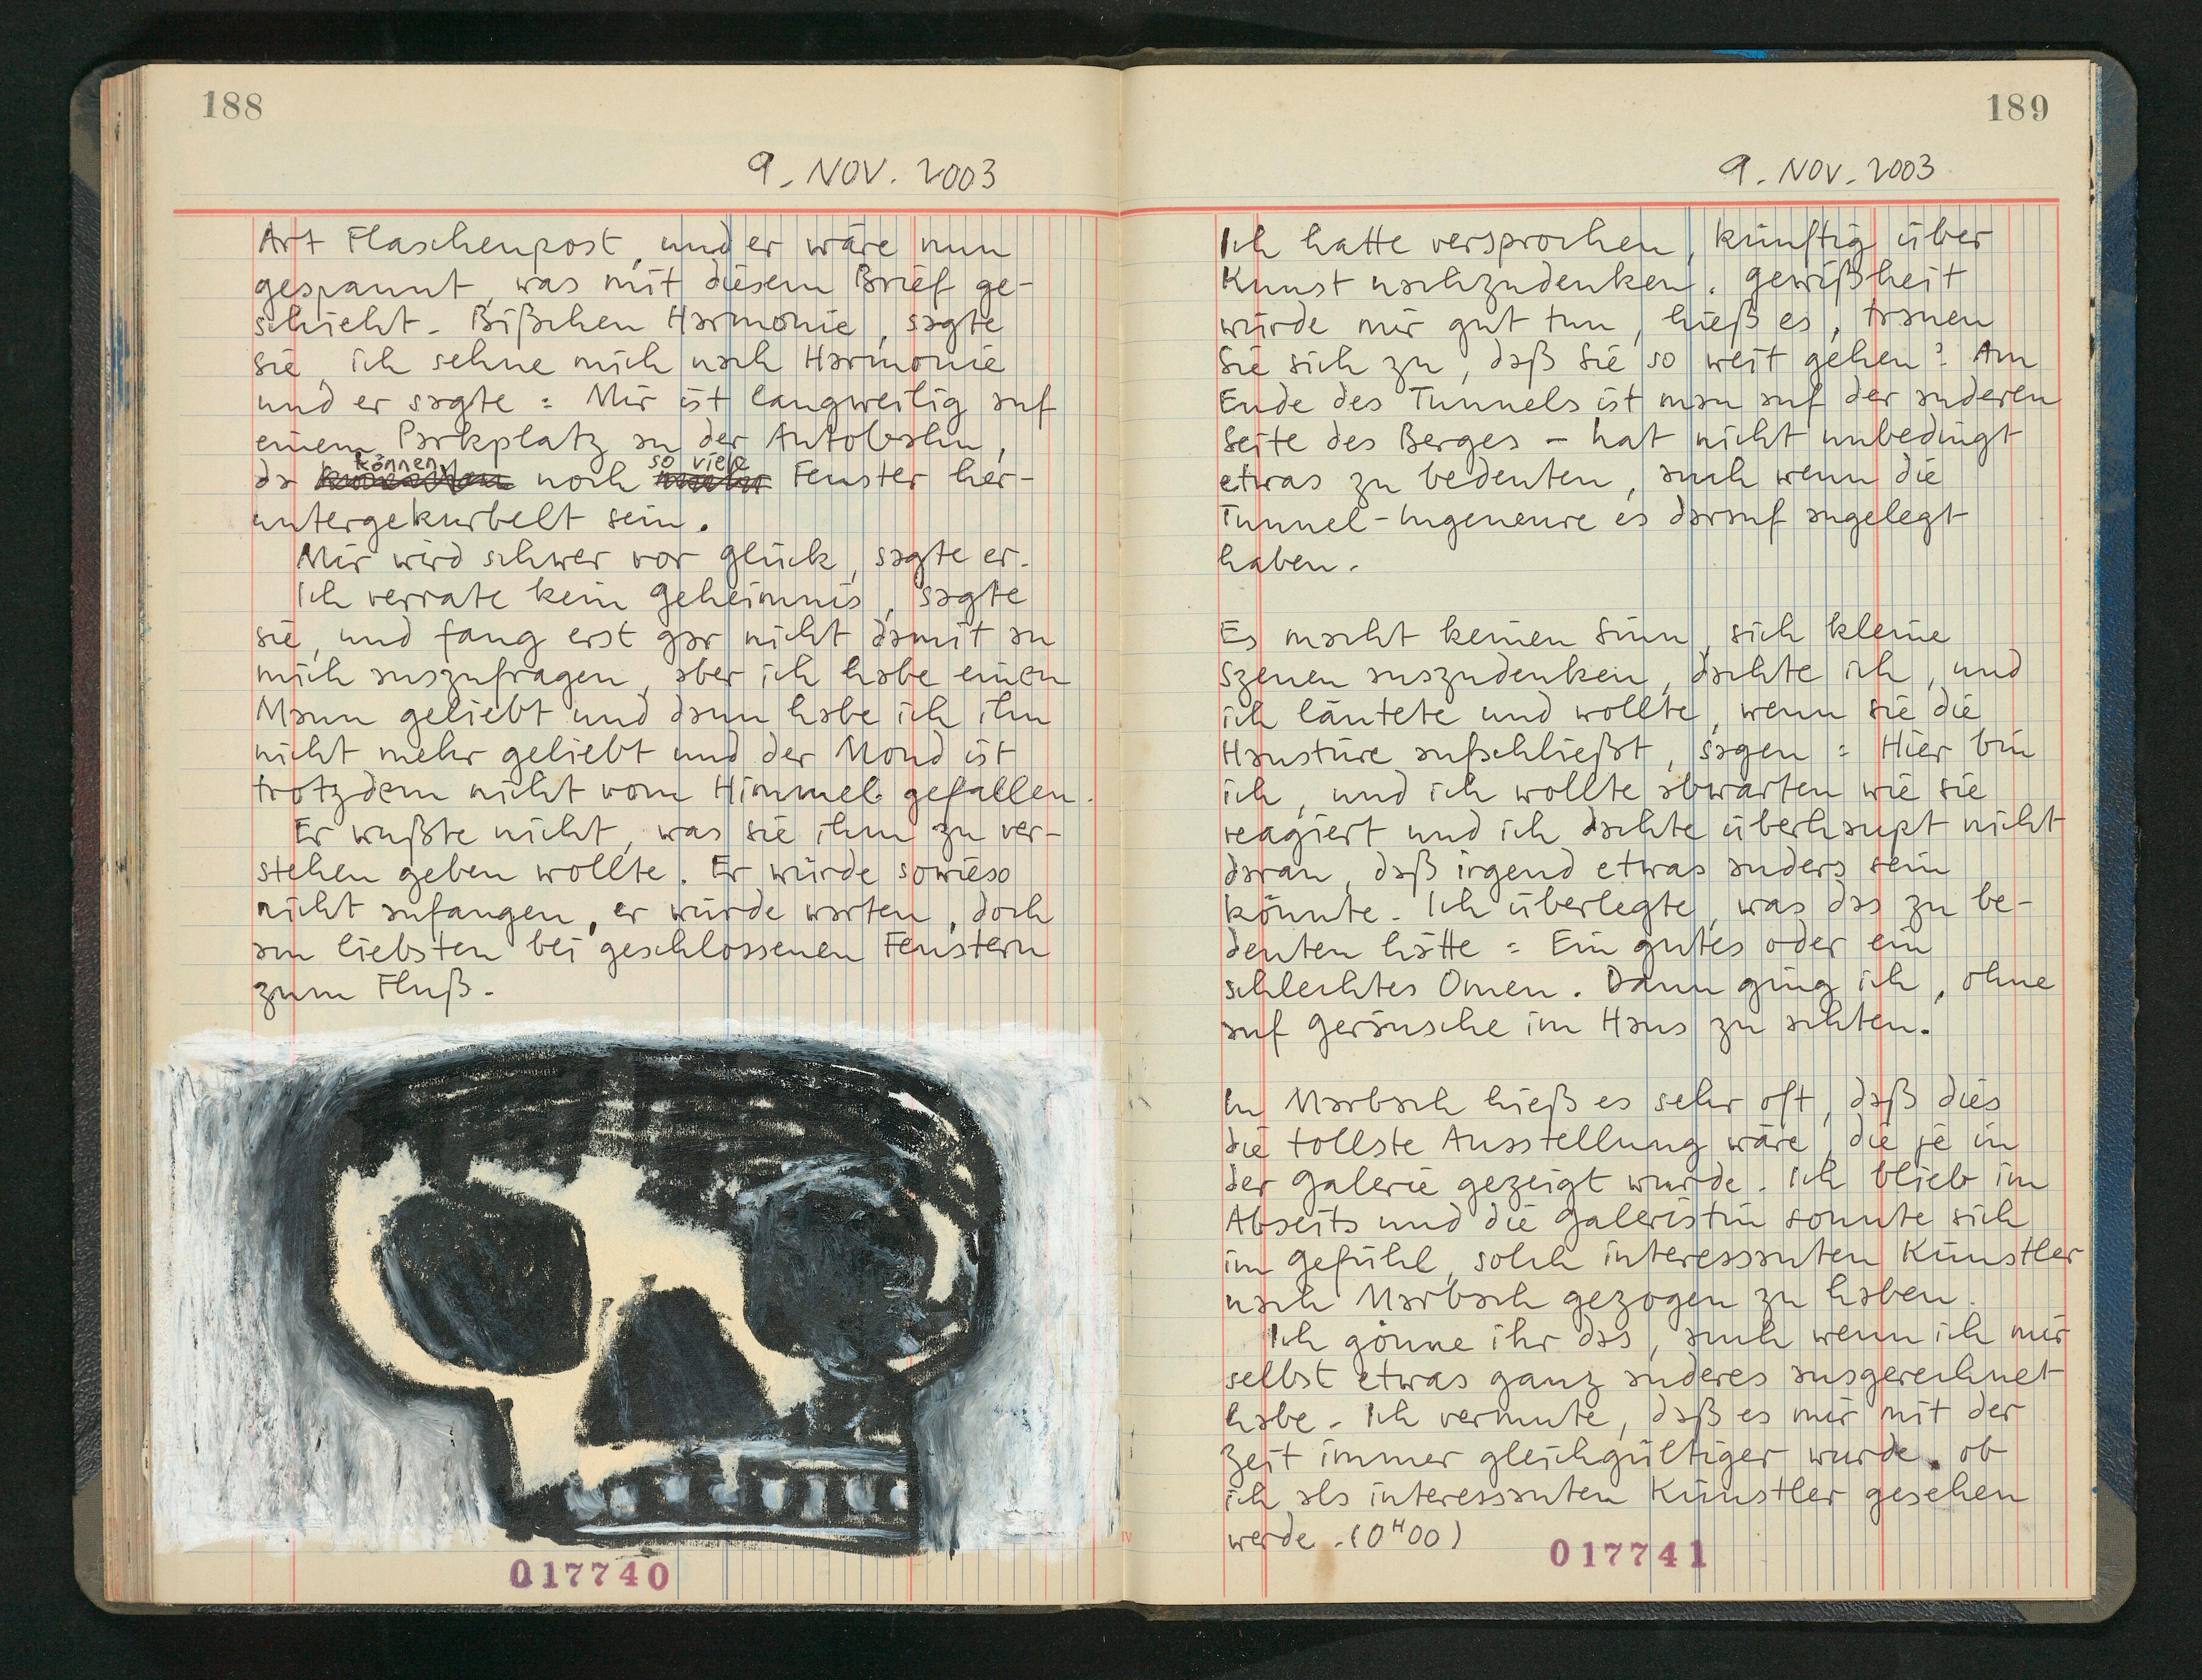 188
9. NOV. 2003
Art Flaschenpost, und er wäre nun
gespannt, was mit diesem Brief ge-
schieht. Bißchen Harmonie, sagte
Sie, ich sehne mich nach Harmonie
und er sagte: Mir ist langweilig auf
einem Parkplatz an der Autobahn,
können so viele
da noch Fenster her-
untergekurbelt sein.
Mir wird schwer vor Glück, sagte er.
Ich verrate kein Geheimnis, sagte
sie, und fang erst gar nicht damit an
mich auszufragen, aber ich habe einen
Mann geliebt und dann habe ich ihn
nicht mehr geliebt und der Mond ist
trotzdem nicht vom Himmel gefallen.
Er wußte nicht, was sie ihm zu ver-
stehen geben wollte. Er würde sowieso
nicht anfangen, er würde warten, doch
am liebsten bei geschlossenen Fenstern
zum Fluß.
017740
189
9. NOV. 2003
Ich hatte versprochen, künftig über
Kunst nachzudenken. Gewißheit
würde mir gut tun, hieß es, trauen
Sie sich zu, daß Sie so weit gehen? Am
Ende des Tunnels ist man auf der anderen
Seite des Berges – hat nicht unbedingt
etwas zu bedeuten, auch wenn die
Tunnel-Ingeneure es darauf angelegt
haben.
Es macht keinen Sinn, sich kleine
Szenen auszudenken, dachte ich, und
ich läutete und wollte, wenn sie die
Haustüre aufschließt, sagen: Hier bin
ich, und ich wollte abwarten wie sie
reagiert und ich dachte überhaupt nicht
daran, daß irgend etwas anders sein
könnte. Ich überlegte, was das zu be-
deuten hätte: Ein gutes oder ein
schlechtes Omen. Dann ging ich, ohne
auf Geräusche im Haus zu achten.
In Marbach hieß es sehr oft, daß dies
die tollste Ausstellung wäre, die je in
der Galerie gezeigt wurde. Ich blieb im
Abseits und die Galeristin sonnte sich
im Gefühl, solch interessanten Künstler
nach Marbach gezogen zu haben.
Ich gönne ihr das, auch wenn ich mir
selbst etwas ganz anderes ausgerechnet
habe. Ich vermute, daß es mir mit der
Zeit immer gleichgültiger wurde, ob
ich als interessanten Künstler gesehen
werde. (0H00)
017741